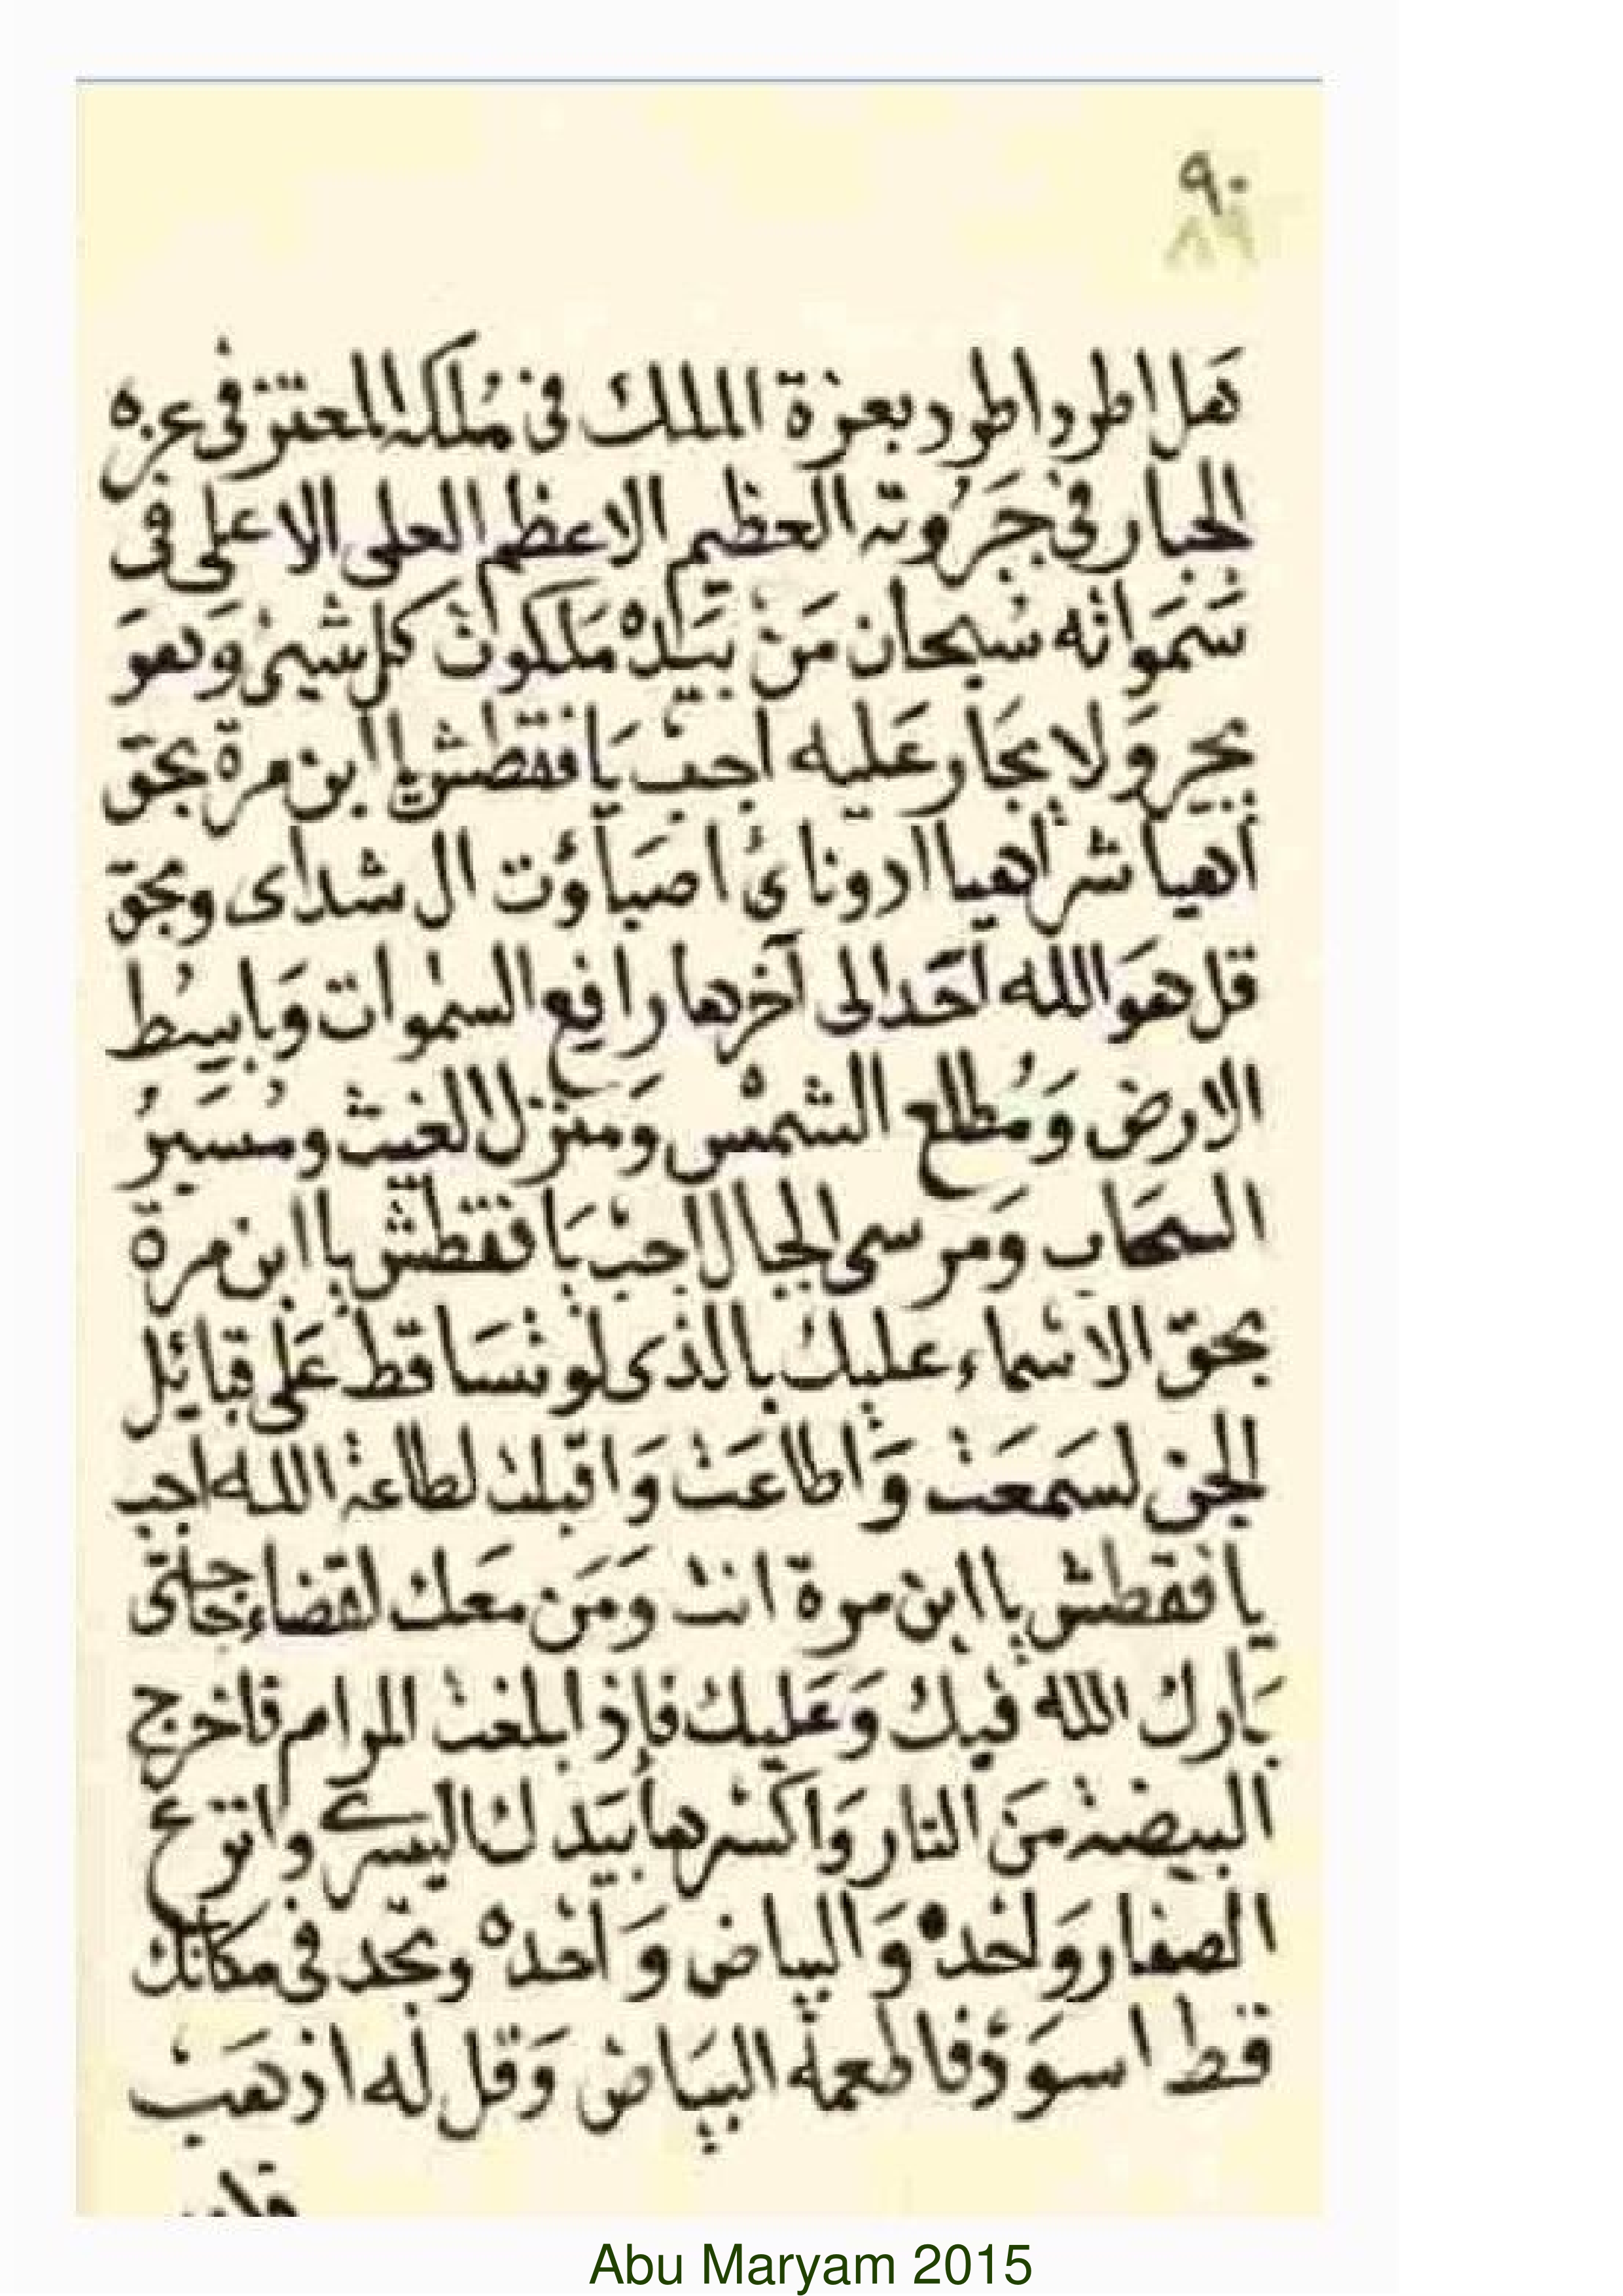 ٩٠
٨٩
هل اطود اطود بعزة الملك فى مُلكه المعتز فى عزه
الجبار فى جَبَرُوته العظيم الاعظم العلى الاعلى فى
سَمَواته سُبحان مَنْ بيَدهْ مَلَكوتُ كل شيئ وَهوَ
يجير وَلا يجَار عَليه اجبْ يَا فقطش يا ابن مرة بحَق
أهيا شر أهيا ادوناىُ اصبَاؤُت ال شداى وبحَق
قل هوَ الله احَد الى آخرها رافع السموات وَباسُط
الارض وَمُطلع الشمسْ وَمنزل الغيث ومُسَيرُ
السحَاب وَمرسى الجبال اجبْ يَا فقطش يا ابن مرة
بحَق الاسْماء عليك بالذى لو تسَاقط عَلى قبائل
الجن لسَمعَتْ وَاطاعَتْ وَاقبلت لطاعة الله اجب
يا فقطش يا ابن مرة انت وَمَن معَك لقضاء حاجتى
بَارك الله فيك وَعَليك فاذا بلغت المرام فاخرج
البيضة مَن النار وَاكسْرها بيَدك اليسرى وانزع
الصفار وَحْده وَالبياض وَحْدهْ وتجد فى مكانك
قط اسوَدْ فاطعمهْ البيَاض وَقل له اذهَبْ